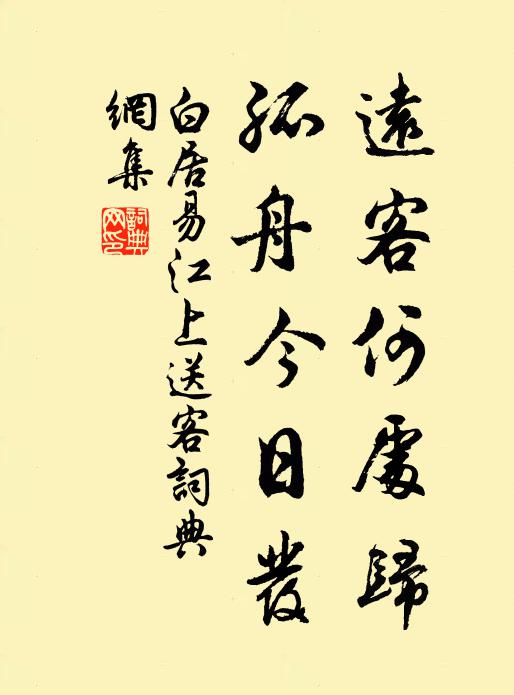 遠客何處歸
孤舟今日發
白居易江上送客詞典
網集
詞典網印